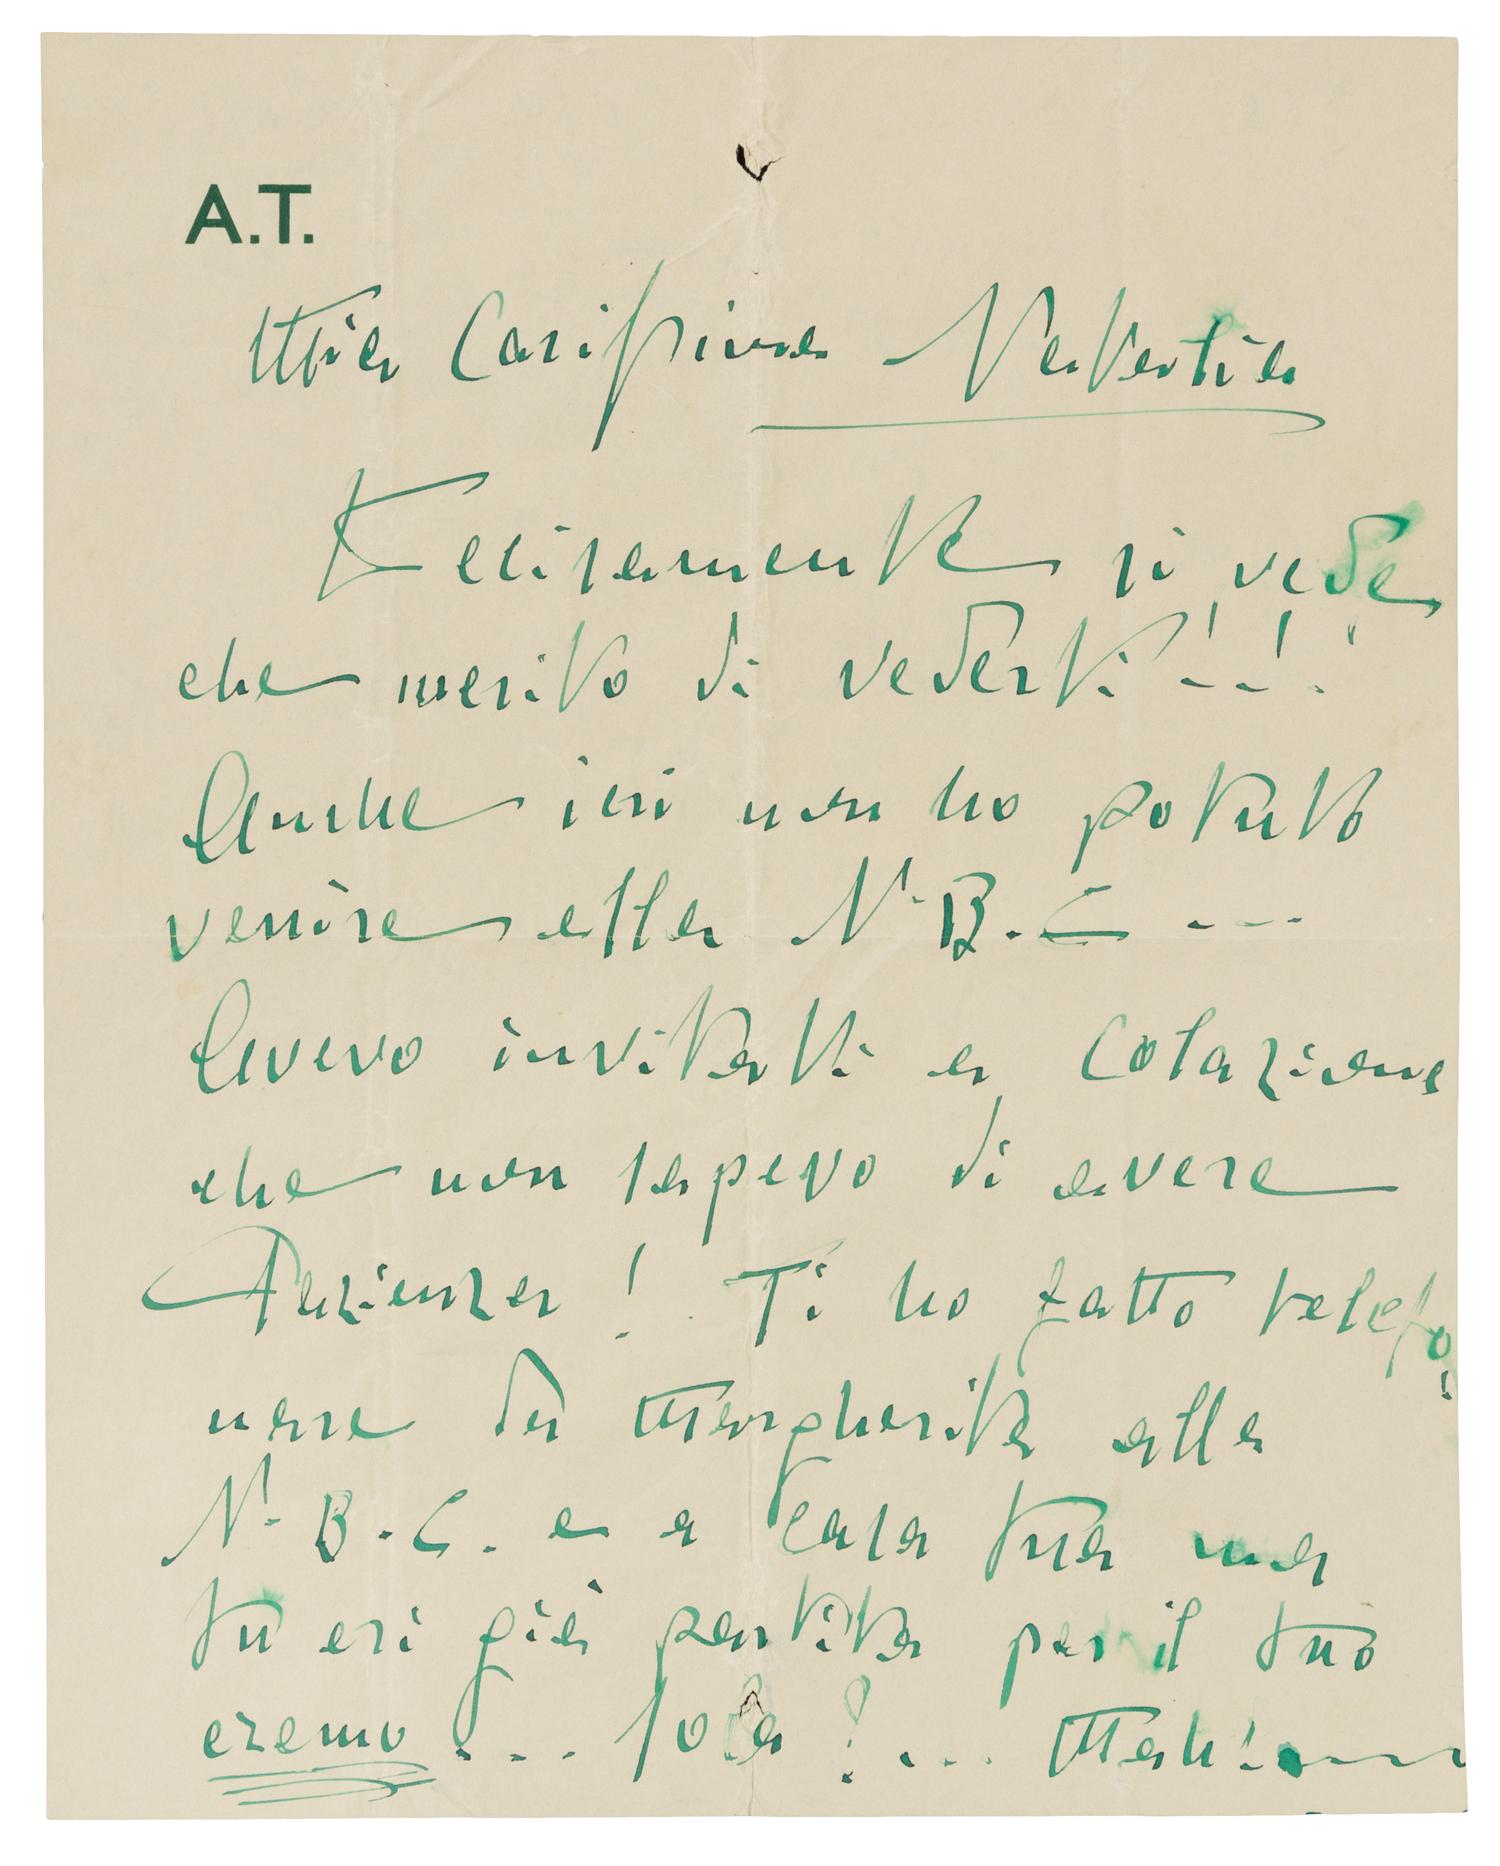 A.T.
Mia Carissima Natalia
Decisamente si vede
che merito di vederti!!!
Anche ieri non ho potuto
venire alla N.B.C. ---
Avevo invitati a colazione
che non sapevo di avere
Pazienza! Ti ho fatto telefo-
nare da Margherita alla
N.B.C. e a casa tua ma
tu eri già partita per il tuo
eremo ... sola?... Mah!...